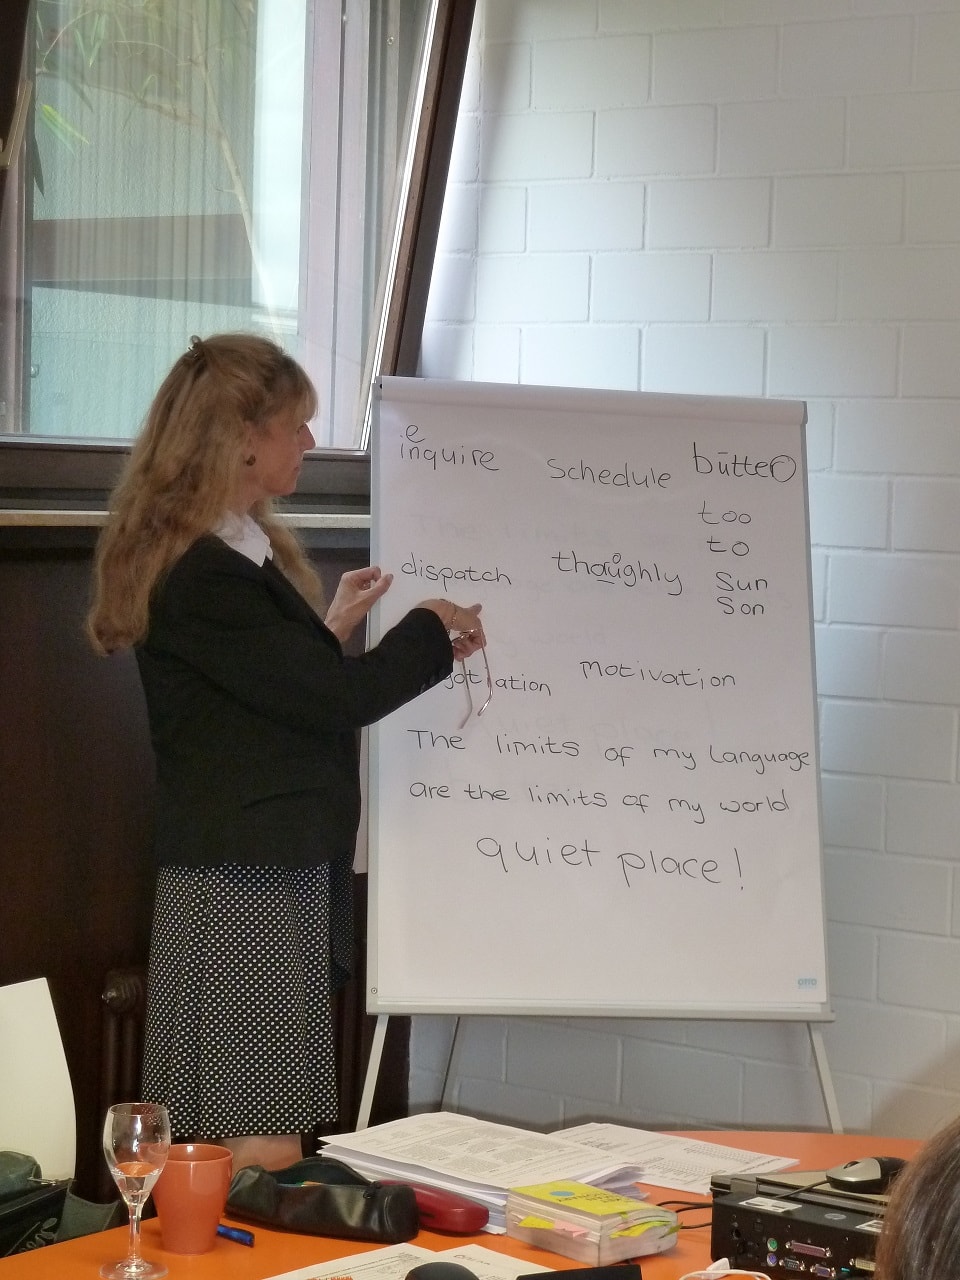 e
inquire
schedule
būtter
too
to
dispatch
thoůghly
sun
son
motivation
The limits of my language
are the limits of my world
quiet place!